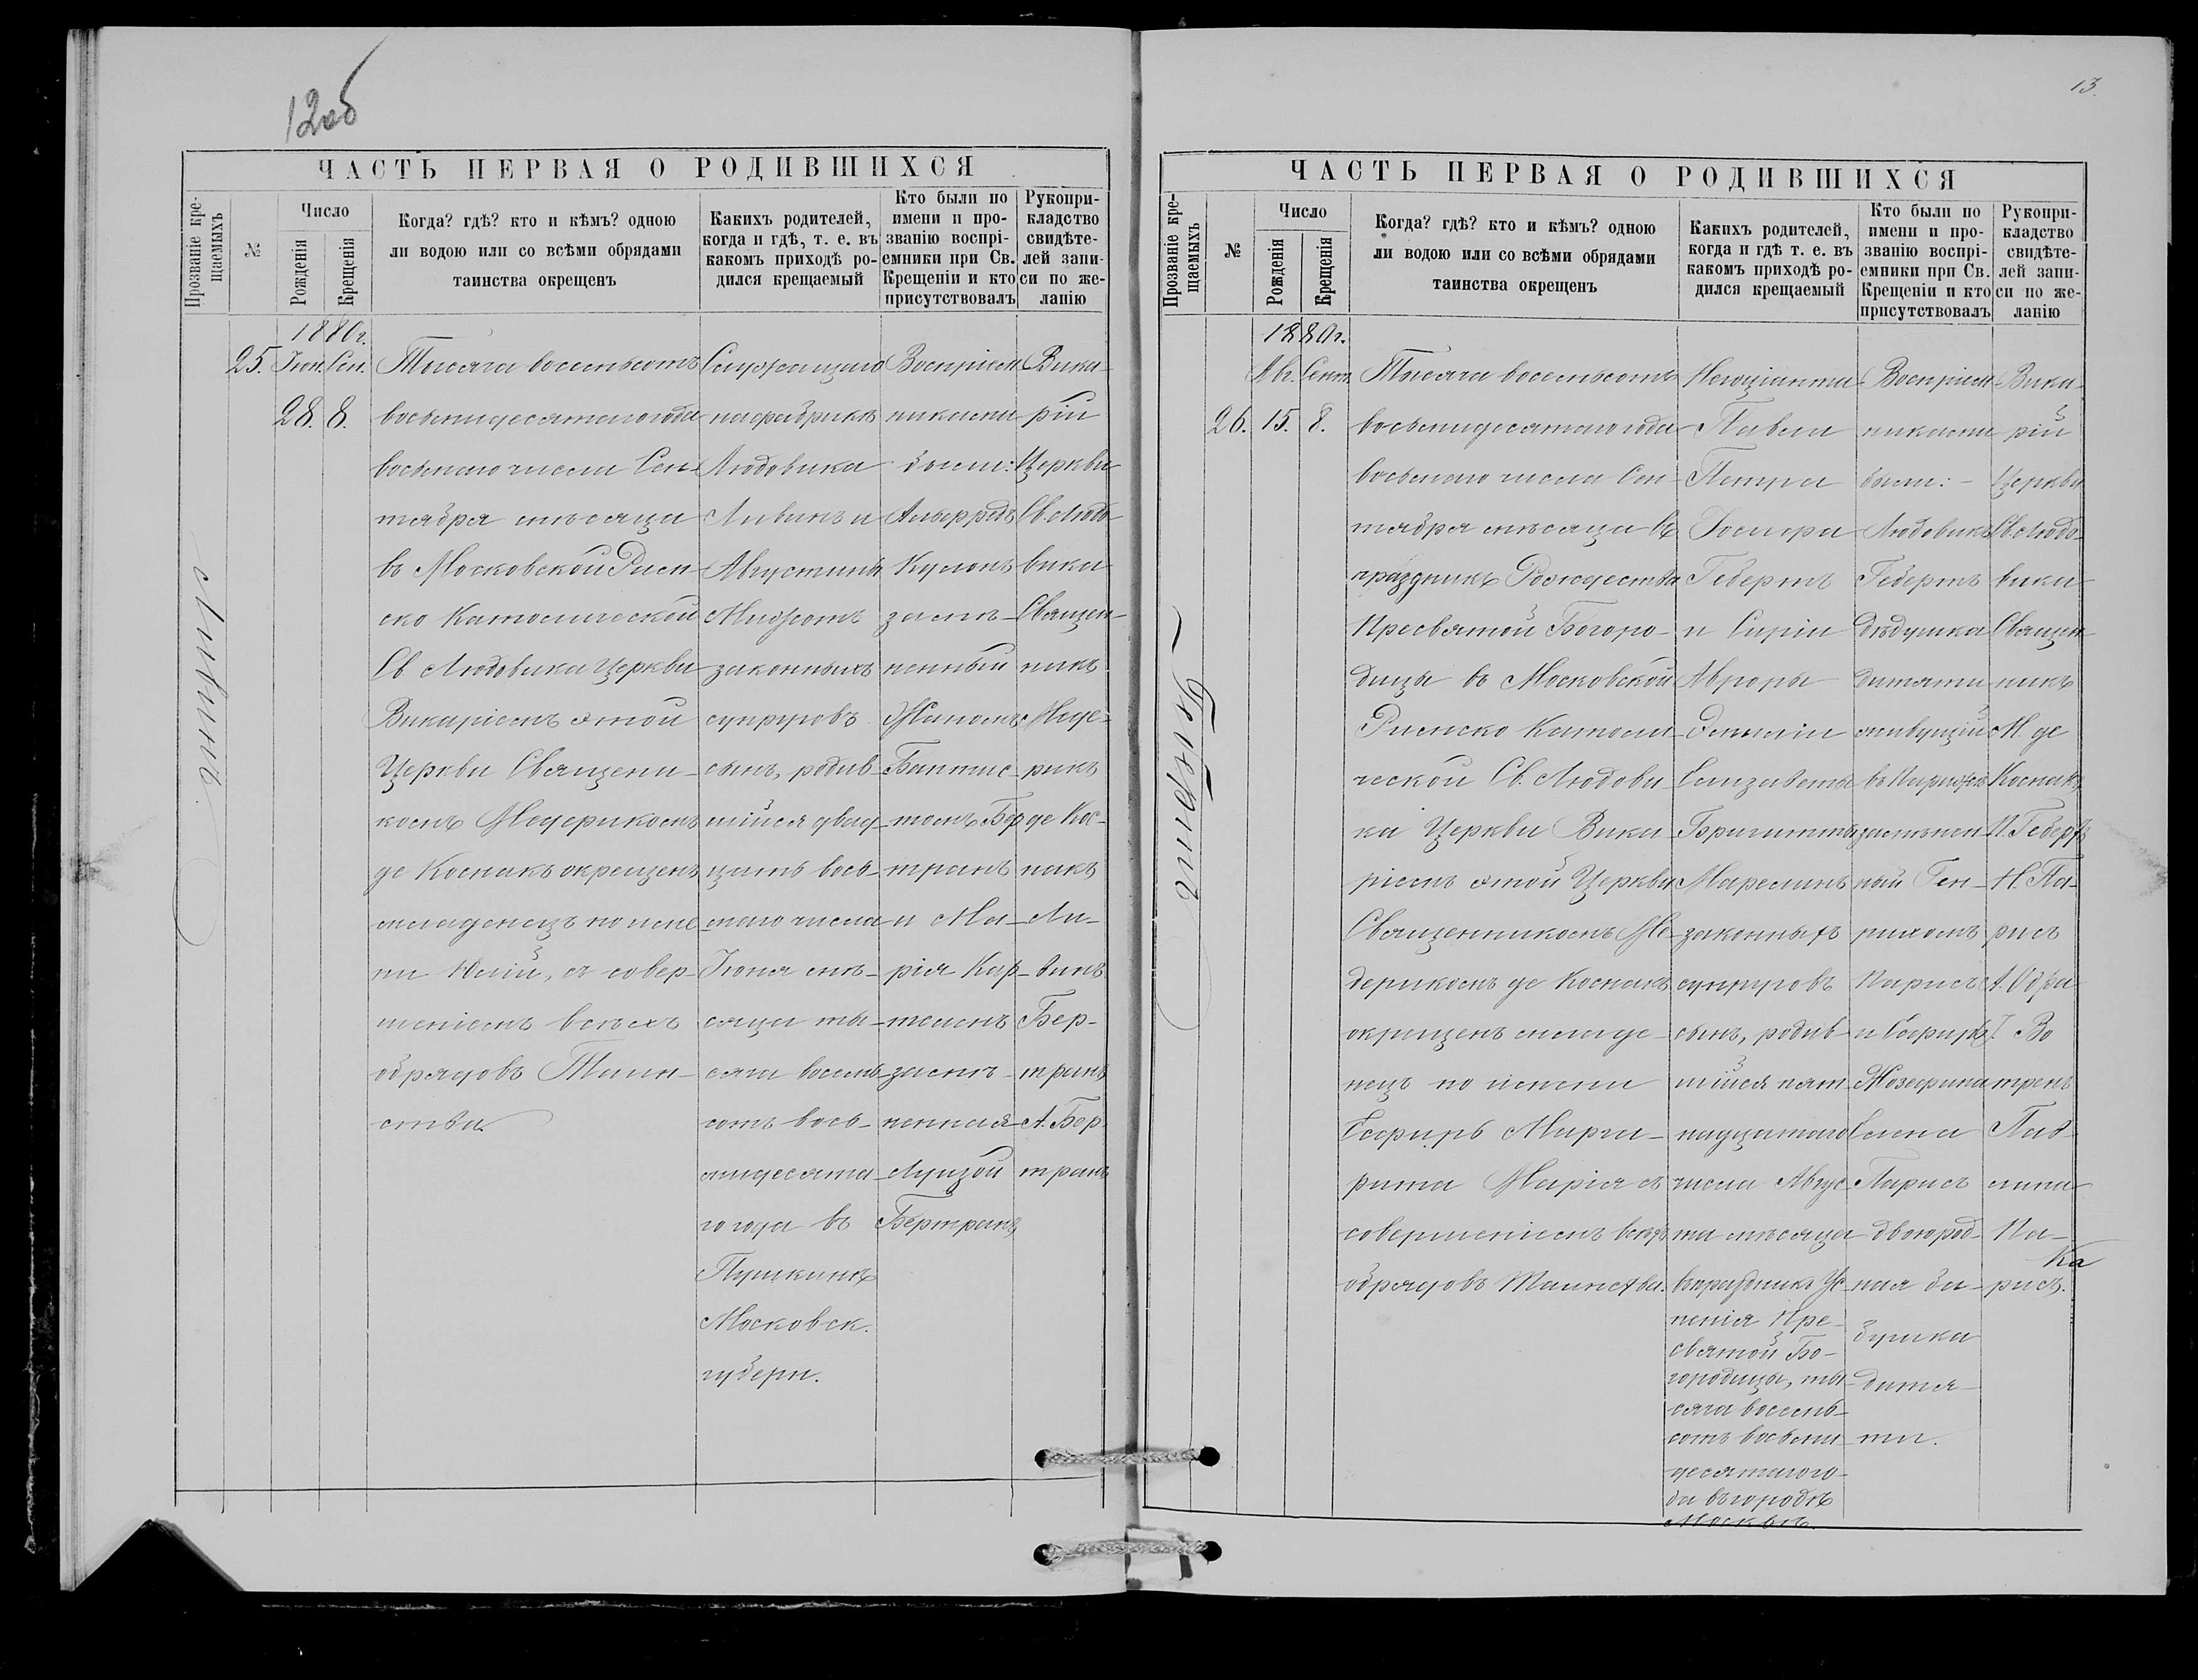 12об
ЧАСТЬ ПЕРВАЯ О РОДИВШИХСЯ
Прозваніе кре-
щаемыхъ
№
Число
Рожденія
Крещенія
Когда? гдѣ? кто и кѣмъ? одною
ли водою или со всѣми обрядами
таинства окрещенъ
Какихъ родителей,
когда и гдѣ, т. е. въ
какомъ приходѣ ро-
дился крещаемый
Кто были по
имени и про-
званію воспрі-
емники при Св.
Крещеніи и кто
присутствовалъ
Рукопри-
кладство
свидѣте-
лей запи-
си по же-
ланію
Ливинъ
1880г.
25. Іюн. Сен.
28. 8.
Тысяча восемьсотъ
восьмидесятаго года
восьмаго числа Сен-
тября мѣсяца
въ Московской Рим-
ско Католической
Св. Людовика Церкви
Викаріемъ этой
Церкви Священни-
комъ Медерикомъ
де Коснакъ окрещенъ
младенецъ по име-
ни Юлій, съ совер-
шеніемъ всѣхъ
обрядовъ Таин-
ства.
Служащаго
на фабрикѣ
Людовика
Ливинъ и
Августины
законныхъ
супруговъ
сынъ, родив-
шійся двад-
цать вось-
маго числа
Іюня мѣ-
сяца ты-
сяча восемь-
сотъ вось-
мидесята-
го года въ
Пушкинѣ
Московск.
губерн.
Воспріем-
никами
были:
Альфредъ
Кулонъ
замѣ-
ненный
Жаномъ
Баптис-
томъ Бер-
транъ
и Ма-
рія Кар-
теленъ
замѣ-
ненная
Луизой
Бертранъ
Вика-
рій
Церкви
Св. Людо-
вика
Священ-
никъ
Меде-
рикъ
де Кос-
накъ
Ли-
винъ
Бер-
транъ
А. Бер-
транъ
13.
ЧАСТЬ ПЕРВАЯ О РОДИВШИХСЯ
Прозваніе кре-
щаемыхъ
№
Число
Рожденія
Крещенія
Когда? гдѣ? кто и кѣмъ? одною
ли водою или со всѣми обрядами
таинства окрещенъ
Какихъ родителей,
когда и гдѣ т. е. въ
какомъ приходѣ ро-
дился крещаемый
Кто были по
имени и про-
званію воспрі-
емники при Св.
Крещеніи и кто
присутствовалъ
Рукопри-
кладство
свидѣте-
лей запи-
си по же-
ланію
Гебертъ
1880г.
Авг. Сент.
26. 15. 8.
Тысяча восемьсотъ
восьмидесятаго года
восьмаго числа Сен-
тября мѣсяца въ
праздникъ Рождества
Пресвятой Богоро-
дицы въ Московской
Римско Католи-
ческой Св. Людови-
ка Церкви Вика-
ріемъ этой Церкви
Священникомъ Ме-
дерикомъ де Коснакъ
окрещенъ младе-
нецъ по имени
Есфирь Марга-
рита Марія съ
совершеніемъ всѣхъ
обрядовъ Таинства.
Негоціанта
Павла
Петра
Гебертъ
и Сиріи
Авроры
Эмиліи
Елизаветы
Бригитты
Марселинъ
законныхъ
супруговъ
сынъ, родив-
шійся пят-
надцатаго
числа Авгус-
та мѣсяца
въ праздникъ Ус-
пенія Пре-
святой Бо-
городицы, ты-
сяча восемь-
сотъ восьми-
десятаго го-
да въ городѣ
Москвѣ.
Воспріем-
никами
были:-
Людовикъ
Гебертъ
дѣдушка
дитяти
живущій
въ Парижѣ
замѣнен-
ный Ген-
рихомъ
Парисъ
и Есфирь
Жозефина
Елена
Парисъ
двоюрод-
ная ба-
бушка
дитя-
ти.
Вика-
рій
Церкви
Св. Людо-
вика
Священ-
никъ
М. де
Коснакъ
П. Гебертъ
Н. Па-
рисъ
Во
тренъ
Пав-
лина
Па-
рисъ.